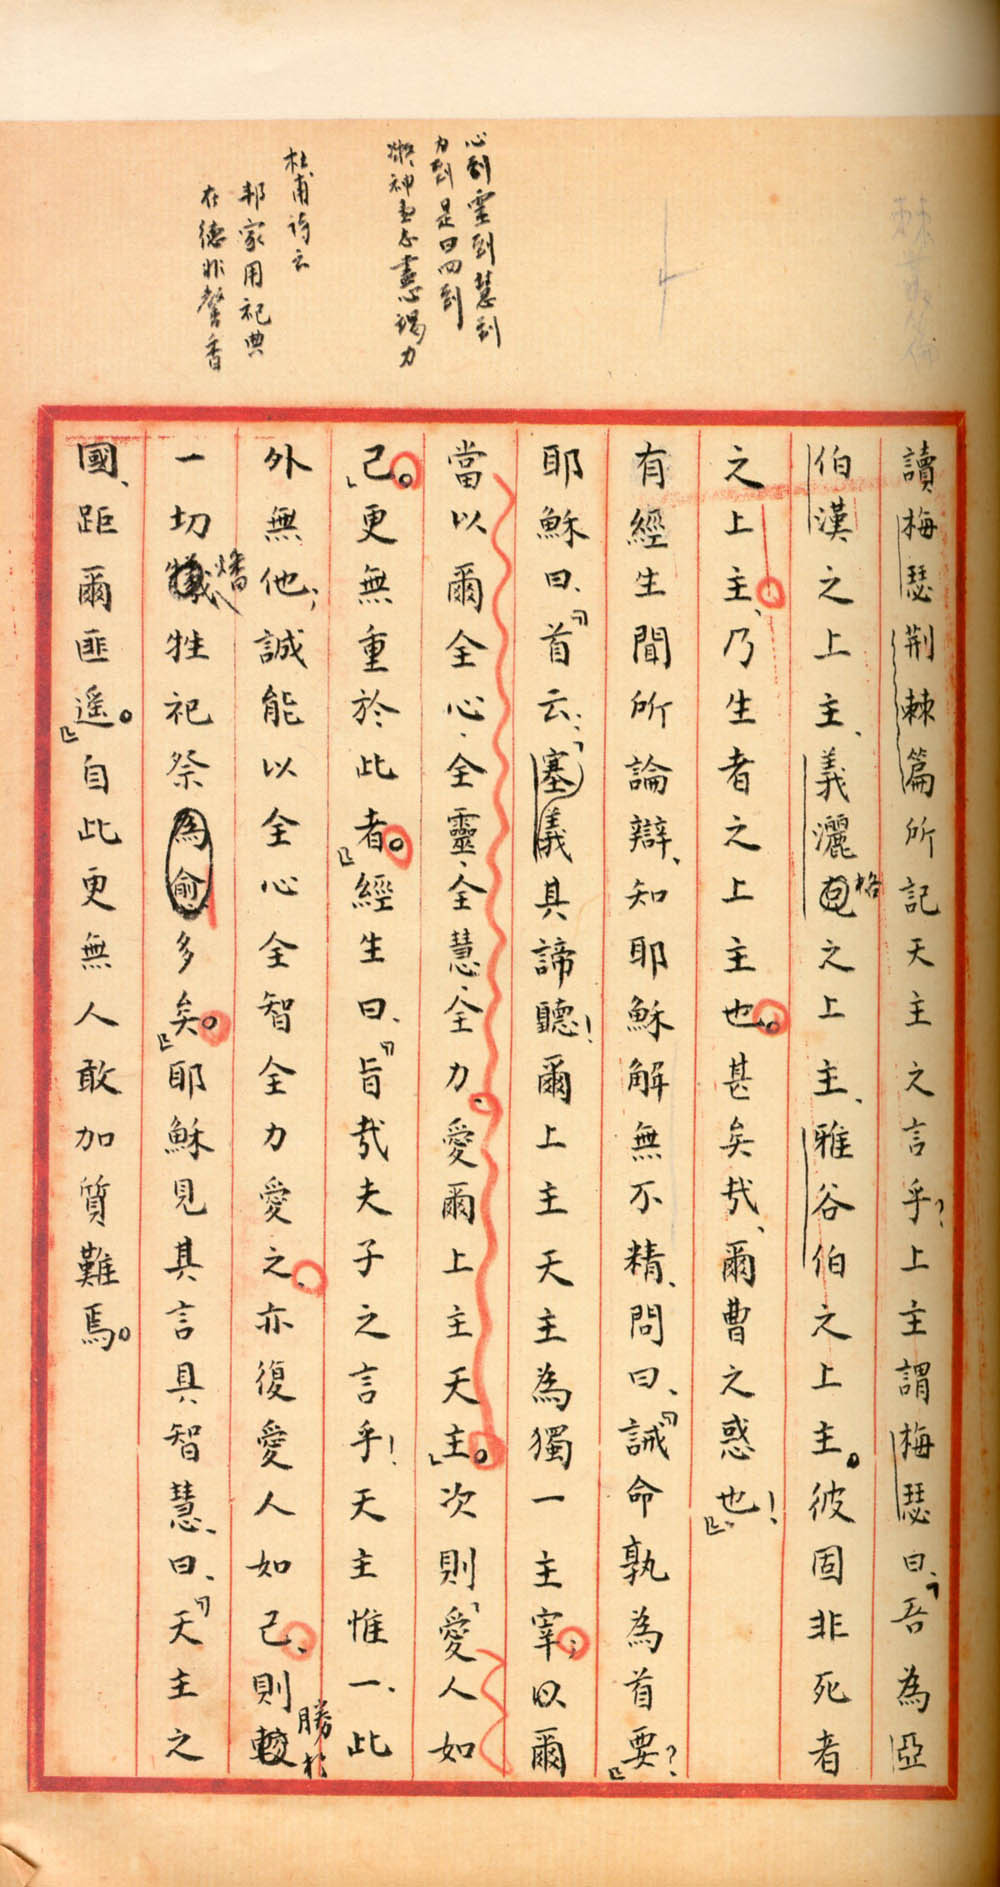 心到靈到慧到
力到是曰四到
凝神壹志憲竭力
杜甫詩云
邦家用祀典
在德非馨香
讀梅瑟荊棘篇所記天主之言乎?上主謂梅瑟曰、『吾為亞
伯漢之上主、義灑格之上主、雅谷伯之上主。彼固非死者
之上主、乃生者之上主也。甚矣哉、爾曹之惑也!』
有經生聞所論辯、知耶穌解無不精、問曰、『誡命孰為首要?』
耶穌曰、『首云:「義塞其諦聽!爾上主天主為獨一主宰;以爾
當以爾全心、全靈、全慧、全力、愛爾上主天主。」次則「愛人如
己。」更無重於此者。』經生曰、『旨哉夫子之言乎!天主惟一、此
外無他;誠能以全心全智全力愛之、亦復愛人如己、則勝於
一切燔牲祀祭多矣。』耶穌見其言具智慧、曰、『天主之
國、距爾匪遥。』自此更無人敢加質難焉。